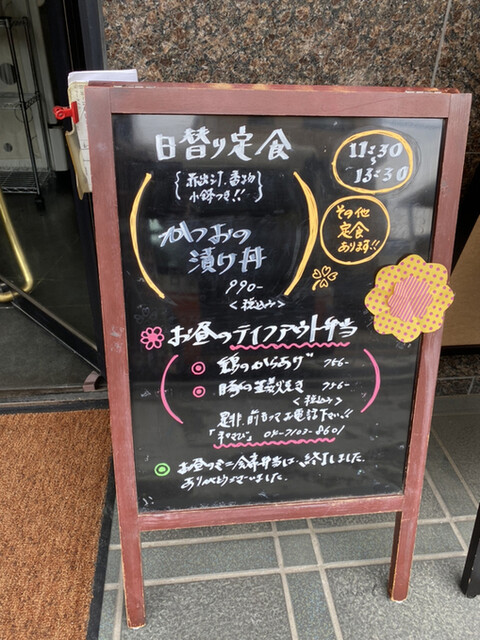 日替り定食
11:30
〜
13:30
{赤出汁、香の物
小鉢つき!!}
その他
定食
あります!!
かつおの
漬け丼
990-
<税込み>
お昼のテイクアウト弁当
鶏のからあげ 756-
豚の生姜焼き 756-
<税込み>
是非、前もってお電話下さい!!
お昼のミニ会席弁当は、終了しました。
ありがとうございました。